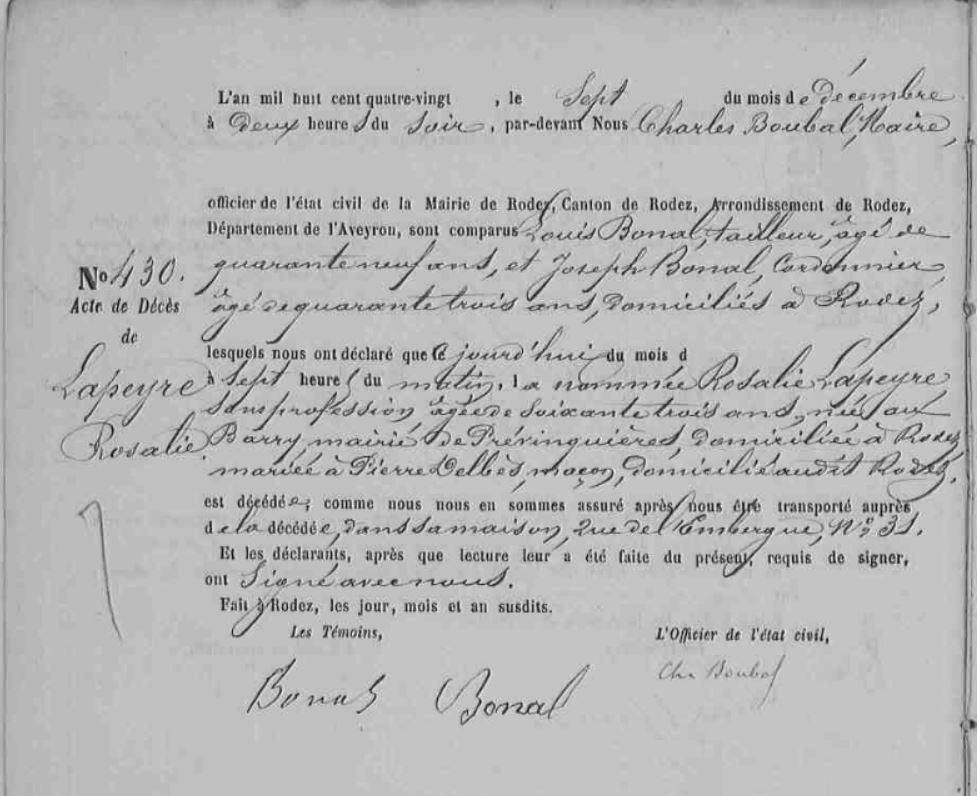 L'an mil huit cent quatre-vingt , le Sept du mois de décembre
à Deux heures du Soir, par-devant Nous Charles Boubal, Maire,
officier de l'état civil de la Mairie de Rodez, Canton de Rodez, Arrondissement de Rodez,
Département de l'Aveyron, sont comparus Louis Bonal, tailleur, âgé de
No 430. quarante neuf ans, et Joseph Bonal, Cordonnier,
Acte de Décès âgé de quarante trois ans, domiciliés à Rodez,
de
lesquels nous ont déclaré que ce jourd'hui du mois d
Lapeyre à Sept heures du matin, la nommée Rosalie Lapeyre
Sans profession, âgée de Soixante trois ans, née au
Rosalie. Barry, mairie de Prévinquières, domiciliée à Rodez,
mariée à Pierre Delbès, maçon, domicilié audit Rodez,
est décédée, comme nous nous en sommes assuré après nous être transporté auprès
de la décédée, dans sa maison, Rue de l'Embergue, Nº 31.
Et les déclarants, après que lecture leur a été faite du présent, requis de signer,
ont Signé avec nous.
Fait à Rodez, les jour, mois et an susdits.
Les Témoins, L'Officier de l'état civil,
Bonal Bonal Ch. Boubal